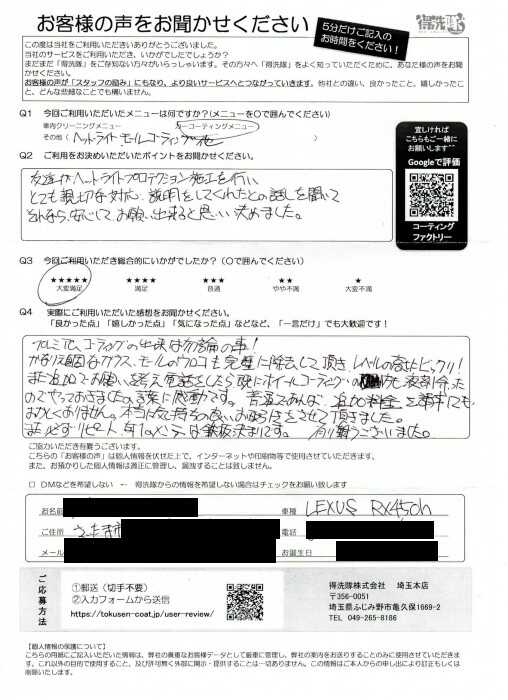 お客様の声をお聞かせください
5分だけご記入の
お時間をください!
得洗隊
この度は当社をご利用いただきありがとうございました。
当社のサービスをご利用いただき、いかがでしたでしょうか?
まだまだ「得洗隊」をご存知ない方々がいらっしゃいます。その方々へ「得洗隊」をよく知っていただくために、あなた様の声をお聞かせください。
お客様の声が「スタッフの励み」にもなり、より良いサービスへとつながっていきます。他社との違い、良かったこと。嬉しかったこと、どんな些細なことでも構いません。
Q1 今回ご利用いただいたメニューは何ですか?(メニューを○で囲んでください)
車内クリーニングメニュー コーティングメニュー
その他( ヘットライト モールコーティング 他 )
宜しければ
こちらもご一緒に
お願いします^^
Googleで評価
コーティング
ファクトリー
Q2 ご利用をお決めいただいたポイントをお聞かせください。
友達がヘットライトプロテクション施工を行い、
とても親切な対応、説明をしてくれたとの話しを聞いて
それなら安心してお願い出来ると思い決めました。
Q3 今回ご利用いただき総合的にいかがでしたか?(○で囲んでください)
★★★★★ ★★★★ ★★★ ★★ ★
大変満足 満足 普通 やや不満 大変不満
Q4 実際にご利用いただいた感想をお聞かせください。
「良かった点」「嬉しかった点」「気になった点」などなど、「一言だけ」でも大歓迎です!
プロミス、コーティングの出来は勿論の事!
かなり頑固なガラス、モールのウロコも完璧に除去して頂き、レベルの高さにビックリ!
また追加でお願いを考え電話をしたら既にホイールコーティングの
のでやっておきましたの言葉に感動です。普通であれば、追加料金を請求でも
おかしくありません。本当に気持ちの良いお取引をさせて頂きました。
また必ずリピート
有り難うございました。
ご協力いただき有難うございます。
こちらの「お客様の声」は個人情報を伏せた上で、インターネットや印刷物等で使用させていただきます。
また、お預かりした個人情報は適正に管理し、漏洩することは致しません。
□ DMなどを希望しない ← 得洗隊からの情報を希望しない場合はチェックをお願い致します
お名前 車種 LEXUS RX450h
ご住所 さいたま市 電話
メール お誕生日
ご応募方法
①郵送(切手不要)
②入力フォームから送信
https://tokusen-coat.jp/user-review/
得洗隊株式会社 埼玉本店
〒356-0051
埼玉県ふじみ野市亀久保1669-2
TEL 049-265-8186
【個人情報の保護について】
こちらの用紙にご記入いただいた情報は、弊社の貴重なお客様データとして厳重に管理し、弊社の案内をお送りすることのみに使用させていただきます。これ以外の目的で使用すること、及び許可無く外部に開示・提供することは一切ありません。この情報はご本人からの申し出により訂正もしくは削除いたします。